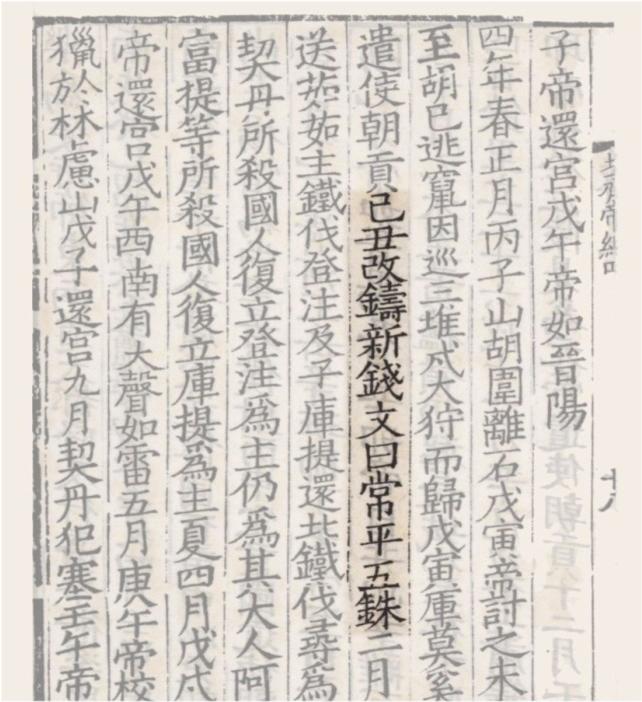 子帝還宮戊午帝如晉陽
四年春正月丙子山胡圍離石戊寅帝討之未
至胡已逃竄因巡三堆戍大狩而歸戊寅庫莫奚
遣使朝貢己丑改鑄新錢文曰常平五銖二月
送茹茹主鐵伐登注及子庫提還北鐵伐尋爲
契丹所殺國人復立登注爲主仍爲其大人阿
富提等所殺國人復立庫提爲主夏四月戊戌
帝還宮戊午西南有大聲如雷五月庚午帝校
獵於林慮山戊子還宮九月契丹犯塞壬午帝